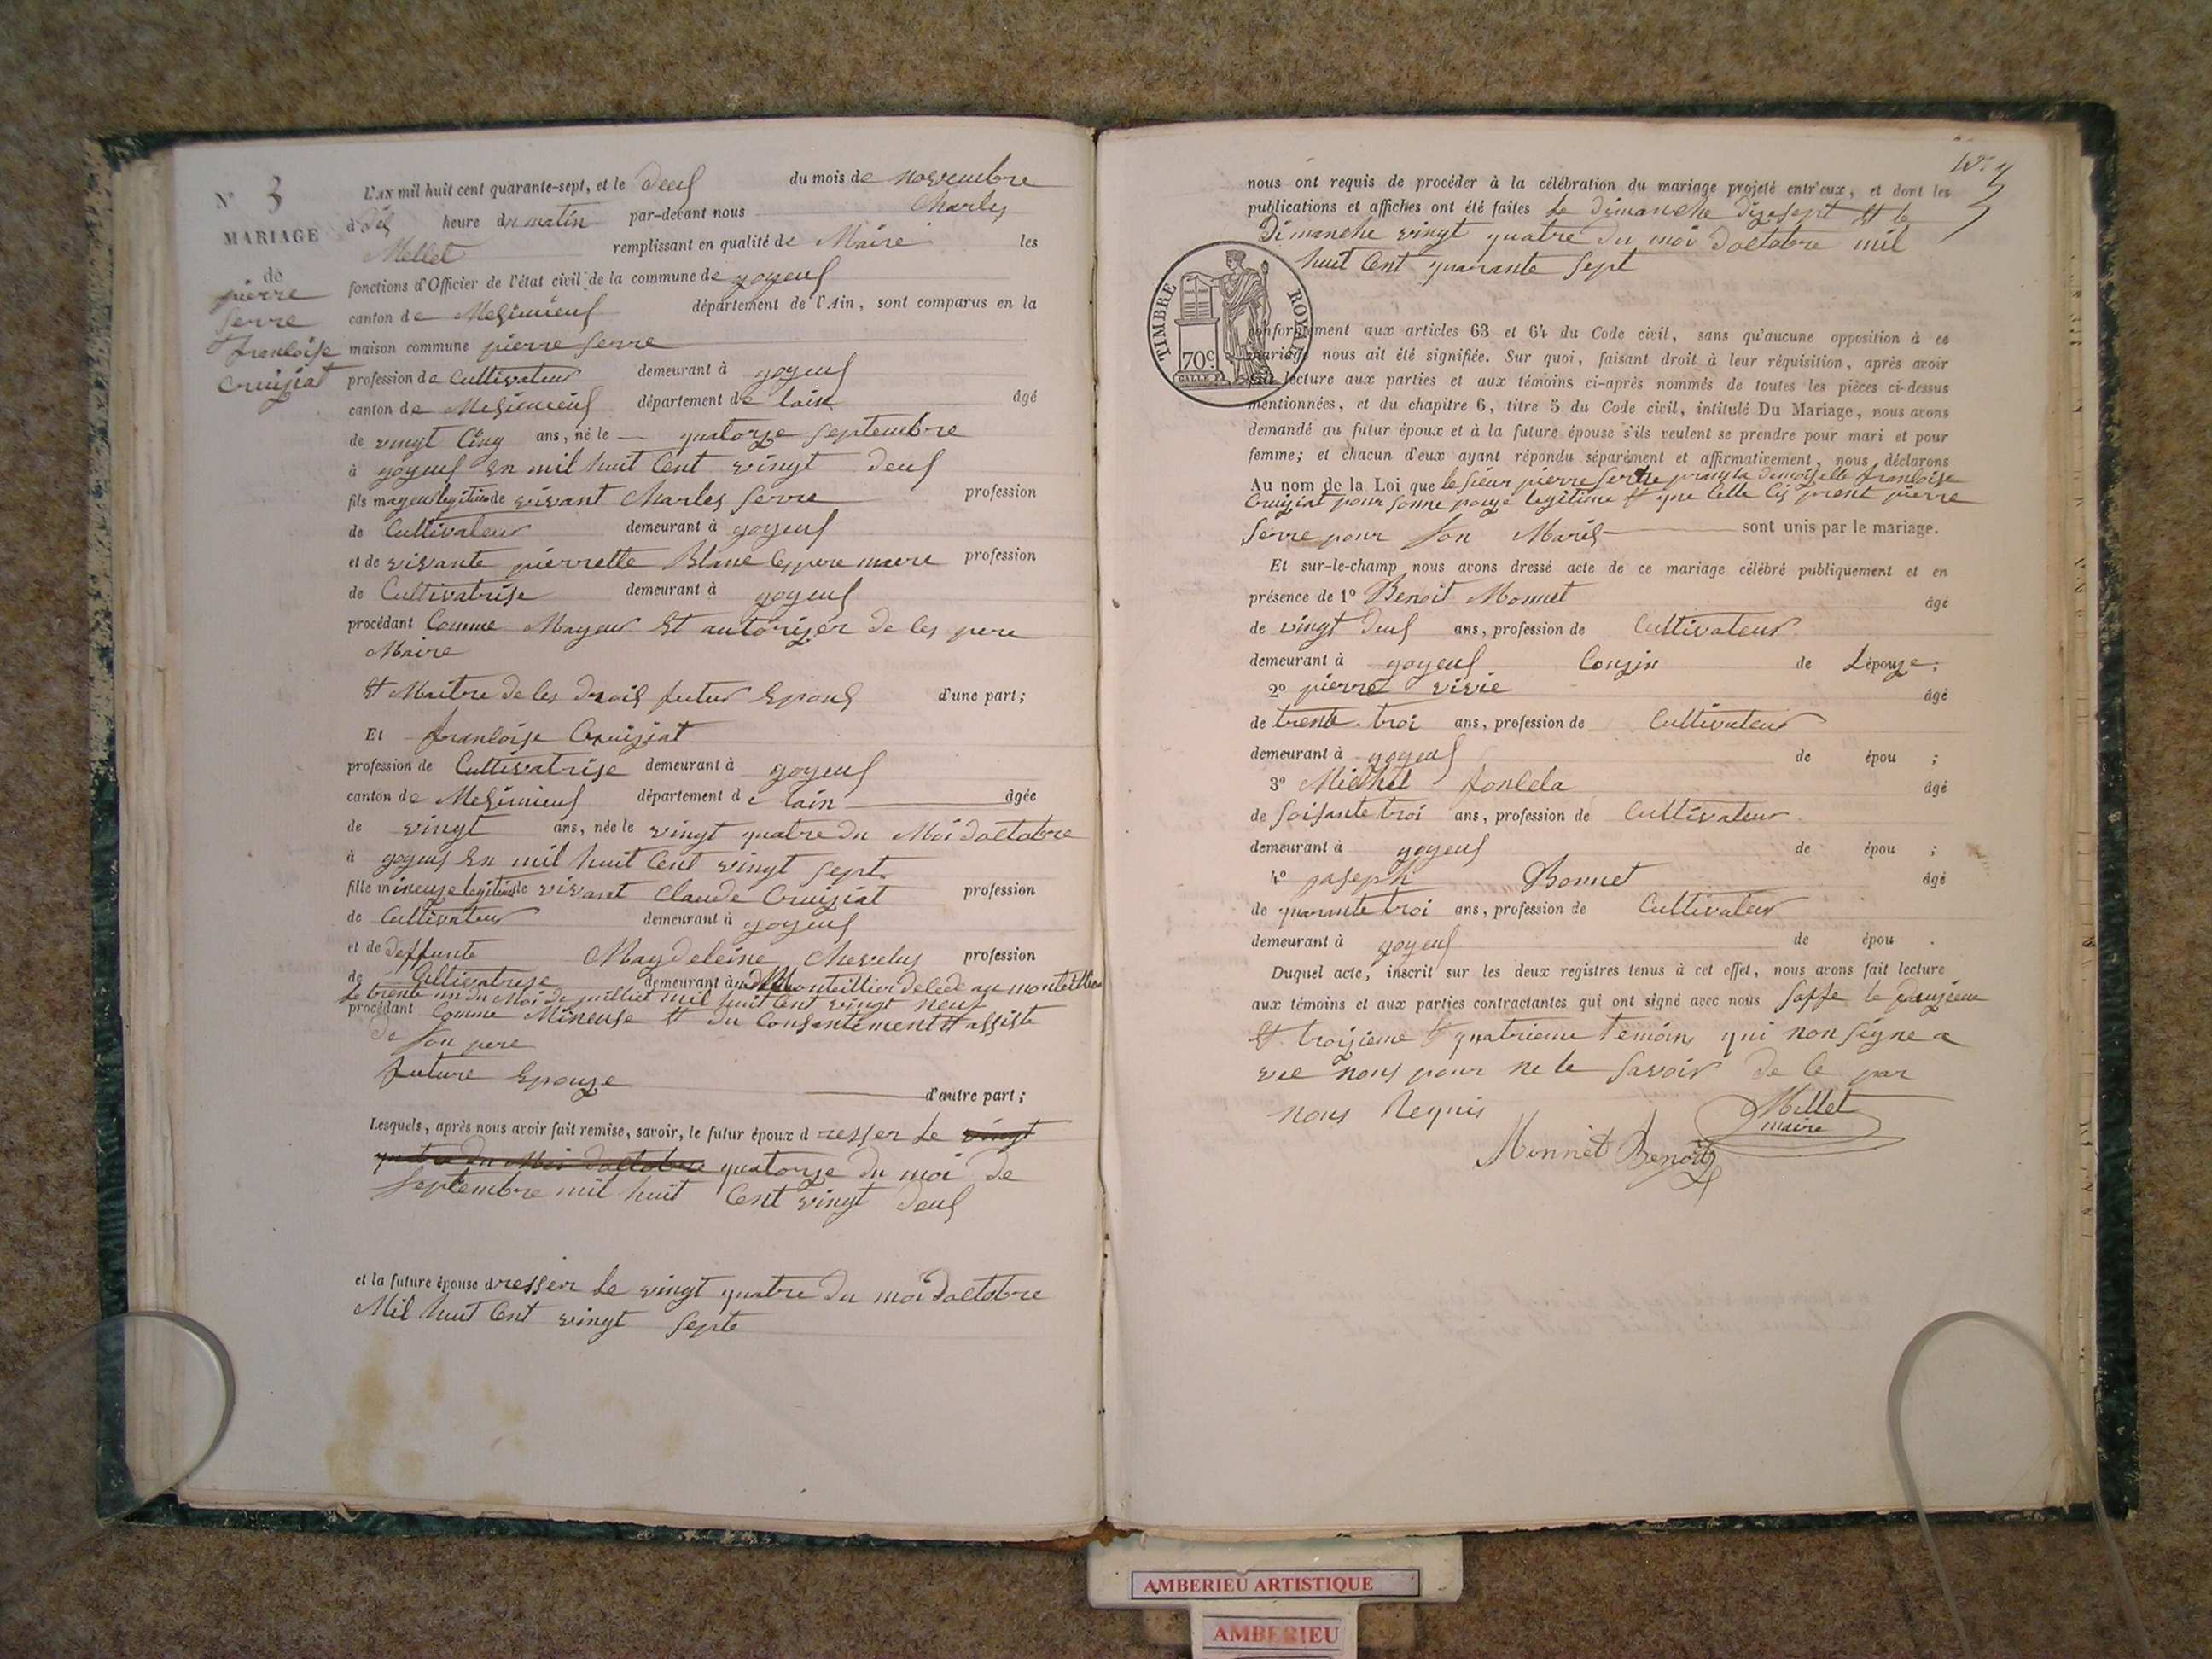 N° 3
MARIAGE
de
pierre
Serre
et francoise
Cruiziat
L'AN mil huit cent quarante-sept, et le deuf du mois de novembre
à dix heure du matin par-devant nous Charles
Mellet remplissant en qualité de Maire les
fonctions d'Officier de l'état civil de la commune de joyeuf
canton de Meximieuf département de l'Ain, sont comparus en la
maison commune pierre Serre
profession de Cultivateur demeurant à joyeuf
canton de Meximieuf département de lain âgé
de vingt Cinq ans, né le quatorze septembre
à joyeuf en mil huit Cent vingt deuf
fils mayeur legitime de vivant Charles Serre profession
de Cultivateur demeurant à joyeuf
et de vivante pierrette Blanc Ces pere maere profession
de Cultivatrise demeurant à joyeuf
procédant Comme Mayeur Et autorizer de Ces pere
Maire
Et Maitre de Ces drois futur Epouf d'une part;
Et francoise Cruiziat
profession de Cultivatrise demeurant à joyeuf
canton de Meximieuf département de lain âgée
de vingt ans, née le vingt quatre du Moi doctobre
à joyeuf En mil huit Cent vingt Sept
fille mineuze legitime de vivant Claude Cruiziat profession
de Cultivateur demeurant à joyeuf
et de deffunte Magdeleine Chevelus profession
de Cultivatrise demeurant à au Montellier decede au montellier
Le trente un du Moi de juilliet mil huit Cent vingt neuf
procédant Comme Mineuse et du Consantement et assiste
de Son pere
future Epouze d'autre part;
Lesquels, après nous avoir fait remise, savoir, le futur époux dresser Le vingt
quatre du Moi doctobre quatorze du moi de
Septembre mil huit Cent vingt deuf
et la future épouse dresser Le vingt quatre du moi doctobre
Mil huit Cent vingt Septe
nous ont requis de procéder à la célébration du mariage projeté entr'eux, et dont les
publications et affiches ont été faites Le dimanche dizesept Et le
Dimanche vingt quatre du moi doctobre mil
huit Cent quarante Sept
TIMBRE ROYAL
70c.
conformément aux articles 63 et 64 du Code civil, sans qu'aucune opposition à ce
mariage nous ait été signifiée. Sur quoi, faisant droit à leur réquisition, après avoir
fait lecture aux parties et aux témoins ci-après nommés de toutes les pièces ci-dessus
mentionnées, et du chapitre 6, titre 5 du Code civil, intitulé Du Mariage, nous avons
demandé au futur époux et à la future épouse s'ils veulent se prendre pour mari et pour
femme; et chacun d'eux ayant répondu séparément et affirmativement, nous déclarons
Au nom de la Loi que le Sieur pierre Serre pran la demoiselle francoise
Cruiziat pour Sonne epouze legitime Et que Celle Cis prent pierre
Serre pour Son Maris sont unis par le mariage.
Et sur-le-champ nous avons dressé acte de ce mariage célébré publiquement et en
présence de 1° Benoit Monnet âgé
de vingt deuf ans, profession de Cultivateur
demeurant à joyeuf Couzin de Lépouze;
2° pierre vivie âgé
de trente troi ans, profession de Cultivateur
demeurant à joyeuf de épou ;
3° Michel fonlela âgé
de Soisante troi ans, profession de Cultivateur
demeurant à joyeuf de épou ;
4° joseph Bonnet âgé
de quarante troi ans, profession de Cultivateur
demeurant à joyeuf de épou .
Duquel acte, inscrit sur les deux registres tenus à cet effet, nous avons fait lecture
aux témoins et aux parties contractantes qui ont signé avec nous Soffe le deuzieme
Et troizieme Et quatrieme Temoin qui non Signe a
vec nous pour ne le Savoir de Ce par
nous Requis
Mellet
maire
Monnet Benoit
AMBERIEU ARTISTIQUE
AMBERIEU